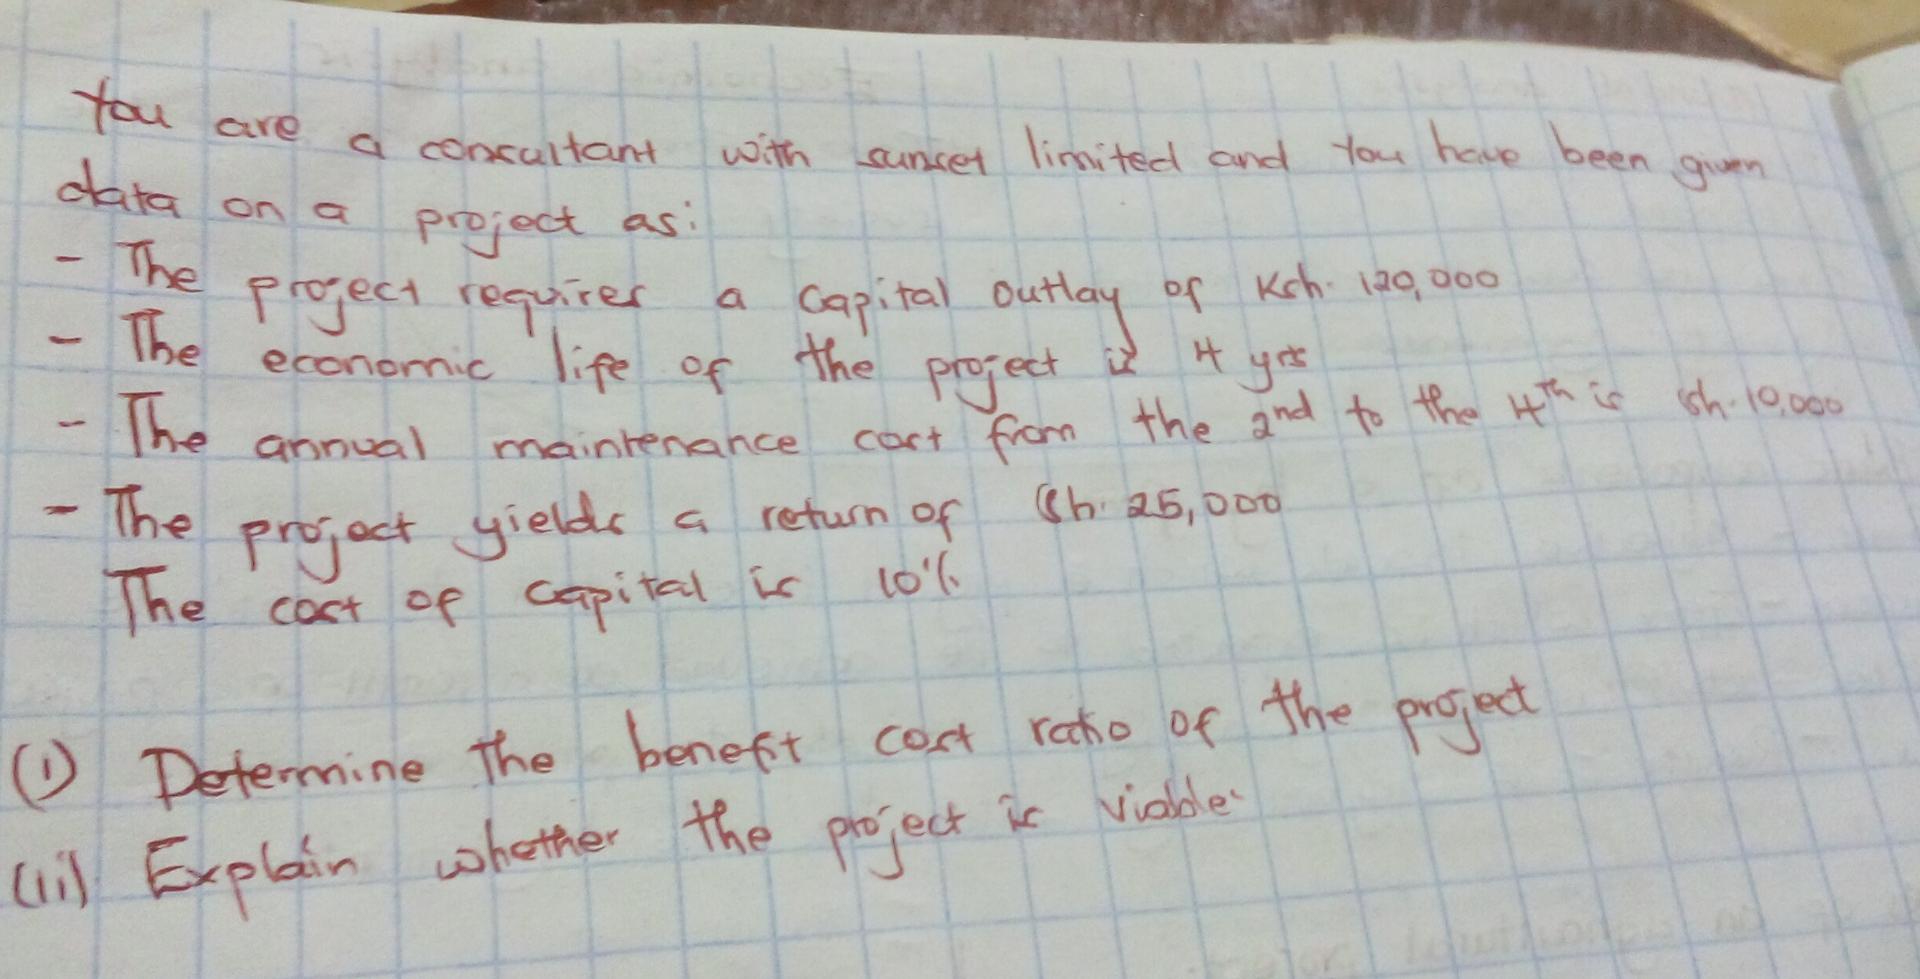 You are a consultant with sunset limited and You have been given
data on a project as:
- The project requires a capital outlay of Ksh. 120,000
- The economic life of the project is 4 yrs
- The annual maintenance cost from the 2nd to the 4th is sh. 10,000
- The project yields a return of Sh. 25,000
The cost of capital is 10%
(i) Determine the benefit cost ratio of the project
(ii) Explain whether the project is viable.